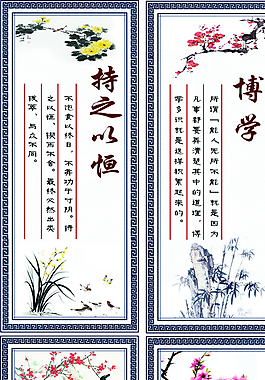 持之以恒
不饱食以终日，不弃功于寸阴。持
之以恒，锲而不舍。最终必然出类
拔萃，与众不同。
博学
所谓「能人无所不能」就是因为
凡事都要弄清楚其中的道理，博
学多识就是这样积累起来的。